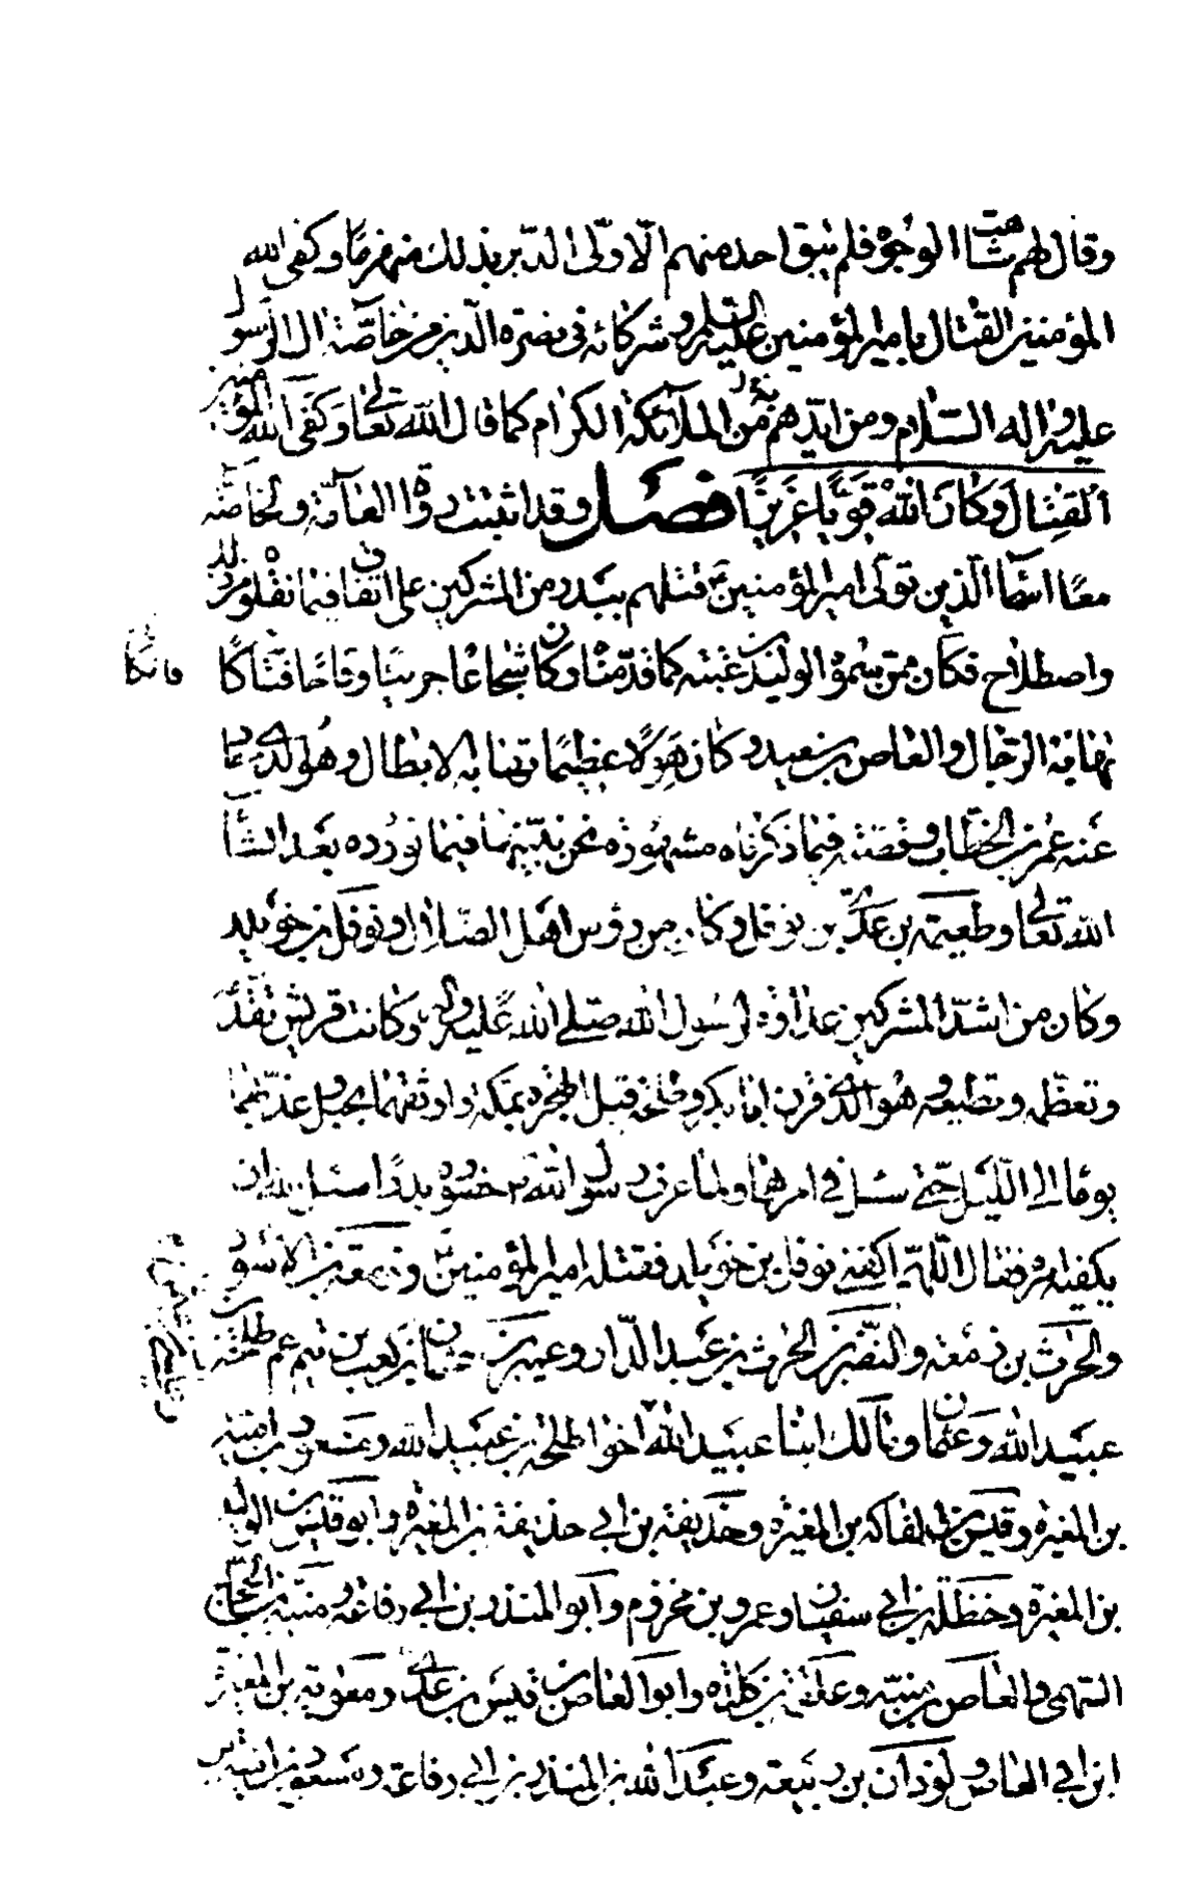 وقال لهم شاهت الوجوه فلم يبق احد منهم الّا ولّى الدّبر بذلك منهزمًا وكفى الله
المؤمنين القتال بامير المؤمنين عليه السلم وشركائه في نصرة الدّين من خاصّة ال الرّسول
عليه واله السّلام ومن ايّدهم به من الملآئكة الكرام كما قال الله تعالى وَكَفَى اللهُ المُؤمنين
القِتالَ وَكانَ اللهُ قَوِيًّا عَزيزًا فصل وقد اثبتت رواة العآمّة والخاصّة
معًا اسمآء الّذين تولّى امير المؤمنين ع قتلهم ببدر من المشركين على اتفاق فيما نقلوه من ذلك
واصطلاح فكان ممّن سمّوه الوليد بن عتبة كما قدّمناه وكان شجاعًا جريئًا وقاحًا فتّاكًا
تهابه الرّجال والعاص بن سعيد وكان هَوْلًا عظيمًا تهابه الابطال وهو الّذي حاد
عنه عمر بن الخطّاب وقصّته فيما ذكرناه مشهورة نحن نبيّنها فيما نورده بعد انشآء
الله تعالى وطعيمة بن عديّ بن نوفل وكان من رؤس اهل الضّلال ونوفل بن خويلد
وكان من اشدّ المشركين عداوة لرسول الله صلّى الله عليه واله وكانت قريش تقدّمه
وتعظّمه وتطيعه وهو الّذي قرن ابا بكر وطلحة قبل الهجرة بمكّة واوثقهما بحبل وعذّبهما
يومًا الى اللّيل حتّى سئل في امرهما ولمّا عرف رسول الله ص حضوره بدرًا سئل الله ان
يكفيه امره فقال اللّهمّ اكفني نوفل بن خويلد فقتله امير المؤمنين ع وزمعة بن الاسود
والحرث بن زمعة والنّضر بن الحرث بن عبد الدّار وعمير بن عثمان بن كعب بن تيم عم طلحة بن
عبيد الله وعثمان ومالك ابنا عبيد الله اخوا طلحة بن عبيد الله ومسعود بن ابي اميّة
بن المغيرة وقيس بن الفاكه بن المغيرة وحذيفة بن ابي حذيفة بن المغيرة وابو قيس بن الوليد
بن المغيرة وحنظلة بن ابي سفيان وعمرو بن مخزوم وابو المنذر بن ابي رفاعة ومنبّه بن الحجّاج
السّهمي والعاص بن منبّه وعلقمة بن كلدة وابو العاص بن قيس بن عديّ ومعوية بن المغيرة
ابن ابي العاص ولوذان بن ربيعة وعبد الله بن المنذر بن ابي رفاعة ومسعود بن اميّة بن
فاتكا